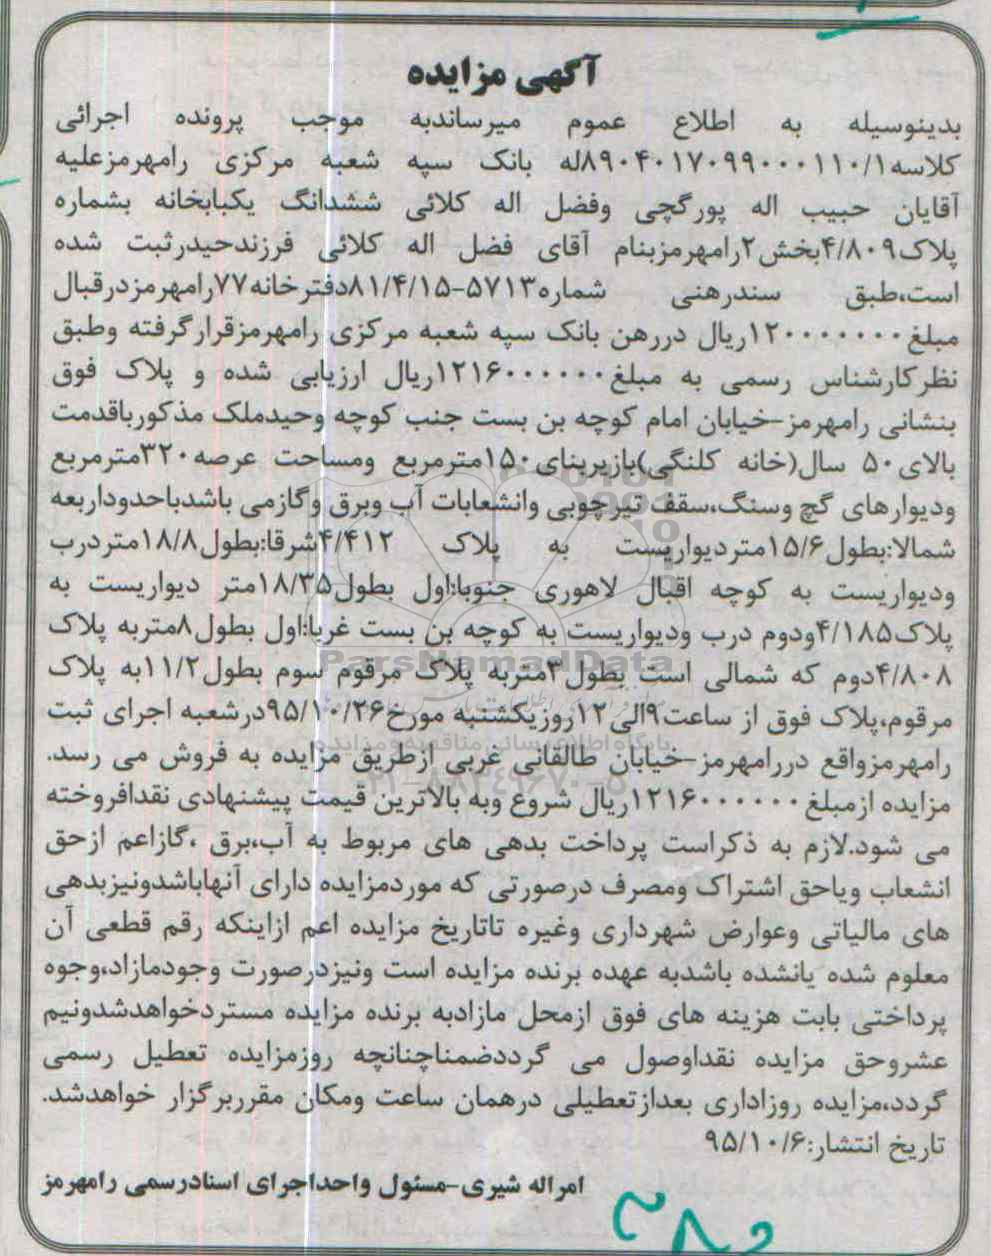 آگهی مزایده
بدینوسیله به اطلاع عموم میرساندبه موجب پرونده اجرائی
کلاسه۸۹۰۴۰۱۷۰۹۹۰۰۰۱۱۰/۱له بانک سپه شعبه مرکزی رامهرمزعلیه
آقایان حبیب اله پورگچی وفضل اله کلائی ششدانگ یکبابخانه بشماره
پلاک۴/۸۰۹بخش۲رامهرمزبنام آقای فضل اله کلائی فرزندحیدرثبت شده
است،طبق سندرهنی شماره۵۷۱۳-۸۱/۴/۱۵دفترخانه۷۷رامهرمزدرقبال
مبلغ۱۲۰۰۰۰۰۰۰ریال دررهن بانک سپه شعبه مرکزی رامهرمزقرارگرفته وطبق
نظرکارشناس رسمی به مبلغ۱۲۱۶۰۰۰۰۰۰ریال ارزیابی شده و پلاک فوق
بنشانی رامهرمز-خیابان امام کوچه بن بست جنب کوچه وحیدملک مذکورباقدمت
بالای۵۰ سال(خانه کلنگی)بازیربنای۱۵۰مترمربع ومساحت عرصه۳۲۰مترمربع
ودیوارهای گچ وسنگ،سقف تیرچوبی وانشعابات آب وبرق وگازمی باشدباحدوداربعه
شمالا:بطول۱۵/۶متردیواریست به پلاک ۴/۴۱۲شرقا:بطول۱۸/۸متردرب
ودیواریست به کوچه اقبال لاهوری جنوبا:اول بطول۱۸/۳۵متر دیواریست به
پلاک۴/۱۸۵ودوم درب ودیواریست به کوچه بن بست غربا:اول بطول۸متربه پلاک
۴/۸۰۸دوم که شمالی است بطول۳متربه پلاک مرقوم سوم بطول۱۱/۲به پلاک
مرقوم،پلاک فوق از ساعت۹الی۱۲روزیکشنبه مورخ۹۵/۱۰/۲۶درشعبه اجرای ثبت
رامهرمزواقع دررامهرمز-خیابان طالقانی غربی ازطریق مزایده به فروش می رسد.
مزایده ازمبلغ ۱۲۱۶۰۰۰۰۰۰ریال شروع وبه بالاترین قیمت پیشنهادی نقدافروخته
می شود.لازم به ذکراست پرداخت بدهی های مربوط به آب،برق ،گازاعم ازحق
انشعاب ویاحق اشتراک ومصرف درصورتی که موردمزایده دارای آنهاباشدونیزبدهی
های مالیاتی وعوارض شهرداری وغیره تاتاریخ مزایده اعم ازاینکه رقم قطعی آن
معلوم شده یانشده باشدبه عهده برنده مزایده است ونیزدرصورت وجودمازاد،وجوه
پرداختی بابت هزینه های فوق ازمحل مازادبه برنده مزایده مستردخواهدشدونیم
عشروحق مزایده نقداوصول می گرددضمناچنانچه روزمزایده تعطیل رسمی
گردد،مزایده روزاداری بعدازتعطیلی درهمان ساعت ومکان مقرربرگزار خواهدشد.
تاریخ انتشار:۹۵/۱۰/۶
امراله شیری-مسئول واحداجرای اسنادرسمی رامهرمز
ParsNamadData
پایگاه اطلاع رسانی مناقصه و مزایده